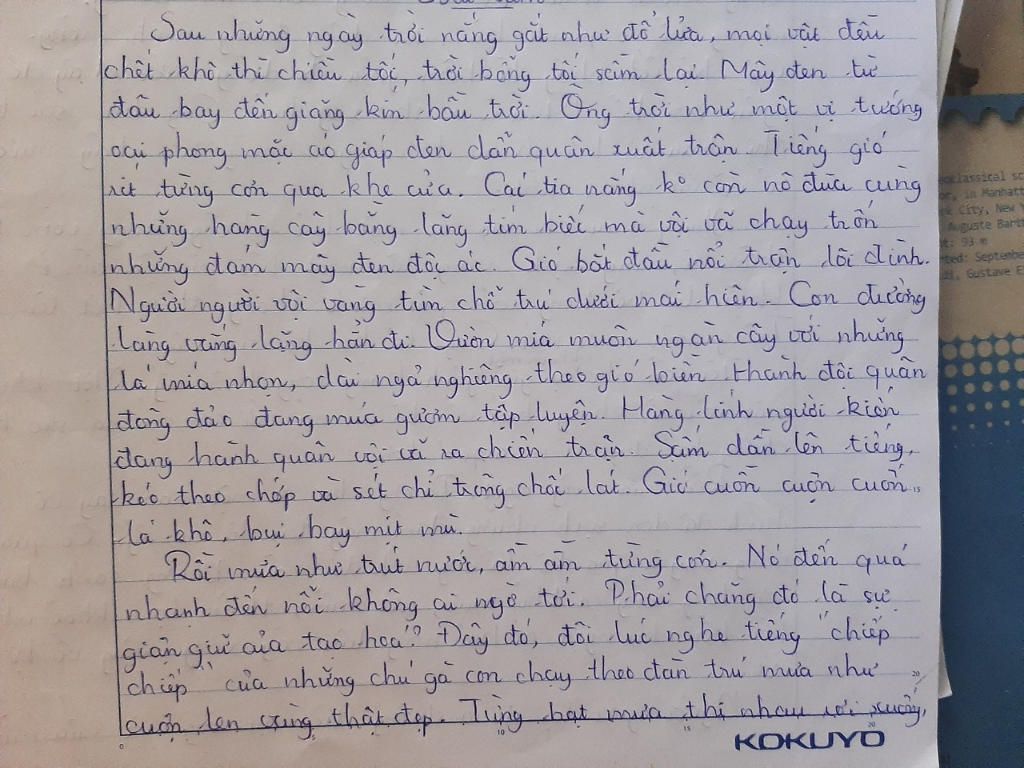 Sau những ngày trời nắng gắt như đổ lửa, mọi vật đều
chết khô thì chiều tối, trời bỗng tối sầm lại. Mây đen từ
đâu bay đến giăng kín bầu trời. Ông trời như một vị tướng
oai phong mặc áo giáp đen dẫn quân xuất trận. Tiếng gió
rít từng cơn qua khe cửa. Cái tia nắng kº còn nô đùa cùng
những hàng cây bằng lăng tím biếc mà vội vã chạy trốn
những đám mây đen độc ác. Gió bắt đầu nổi trận lôi đình.
Người người vội vàng tìm chỗ trú dưới mái hiên. Con đường
làng vắng lặng hẳn đi. Vườn mía muôn ngàn cây với những
lá mía nhọn, dài ngả nghiêng theo gió biến thành đội quân
đông đảo đang múa gươm tập luyện. Hàng lính người kiến
đang hành quân vội vã ra chiến trận. Sấm dần lên tiếng,
kéo theo chớp và sét chỉ trong chốc lát. Gió cuốn cuộn cuốn
lá khô, bụi bay mịt mù.
Rồi mưa như trút nước, ầm ầm từng cơn. Nó đến quá
nhanh đến nỗi không ai ngờ tới. Phải chăng đó là sự
giận giữ của tạo hoá? Đây đó, đôi lúc nghe tiếng "chiếp
chiếp" của những chú gà con chạy theo đàn trú mưa như
cuộn len vàng thật đẹp. Từng hạt mưa thi nhau rơi xuống,
KOKUYO
in Manhatt
City, New Y
Auguste Barth
: 93 m
ted: September
Gustave E